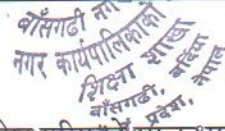 बाँसगढी नग
नगर कार्यपालिकाको
शिक्षा शाखा
बाँसगढी, बर्दिया
प्रदेश, नेपाल